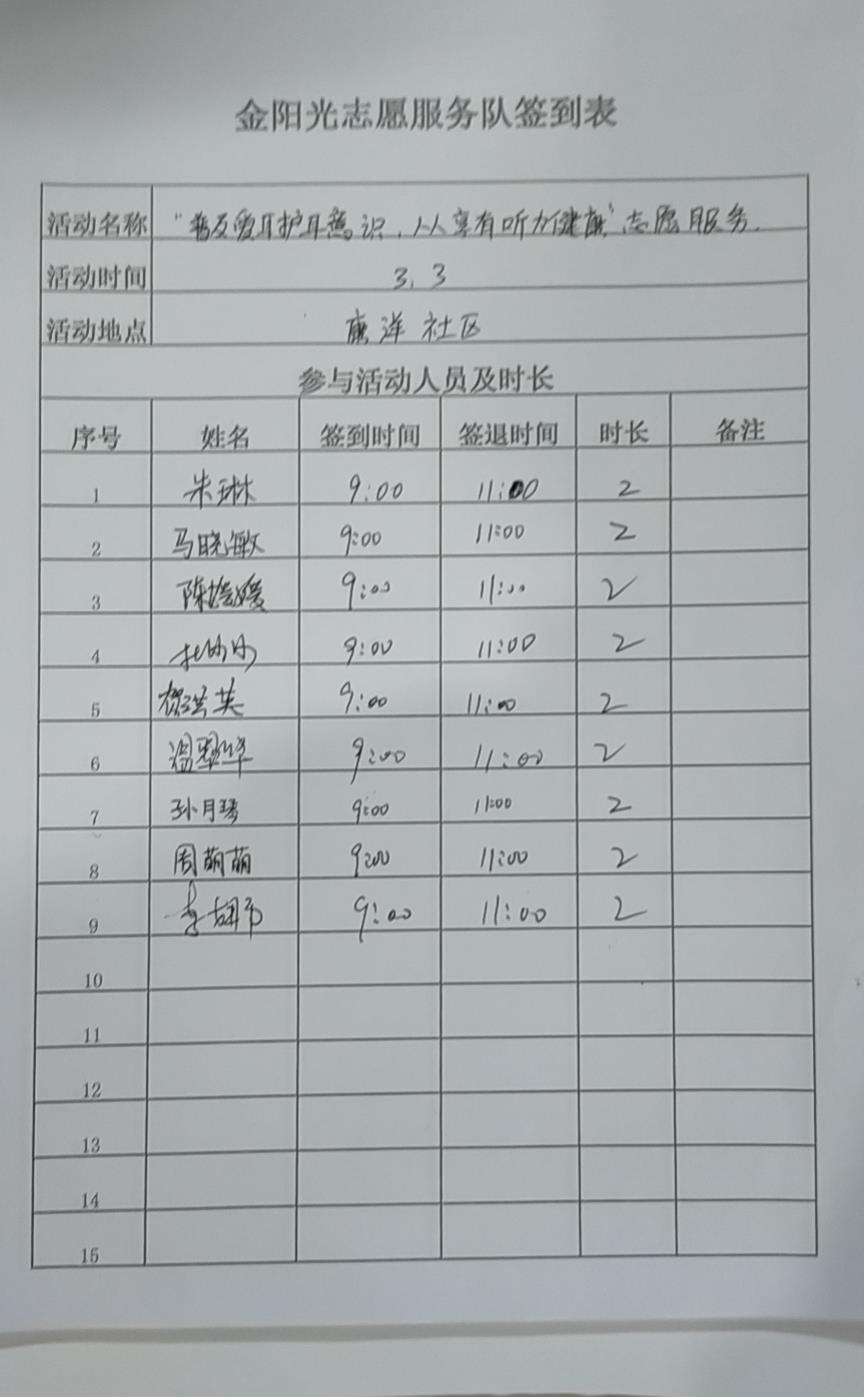 金阳光志愿服务队签到表
活动名称 “普及爱耳护耳意识，人人享有听力健康”志愿服务.
活动时间 3.3
活动地点 康洋社区
参与活动人员及时长
序号 姓名 签到时间 签退时间 时长 备注
1 朱琳 9:00 11:00 2
2 马晓敏 9:00 11:00 2
3 陈 媛 9:00 11:00 2
4 9:00 11:00 2
5 英 9:00 11:00 2
6 温翠华 9:00 11:00 2
7 孙月琴 9:00 11:00 2
8 周萌萌 9:00 11:00 2
9 李 9:00 11:00 2
10
11
12
13
14
15